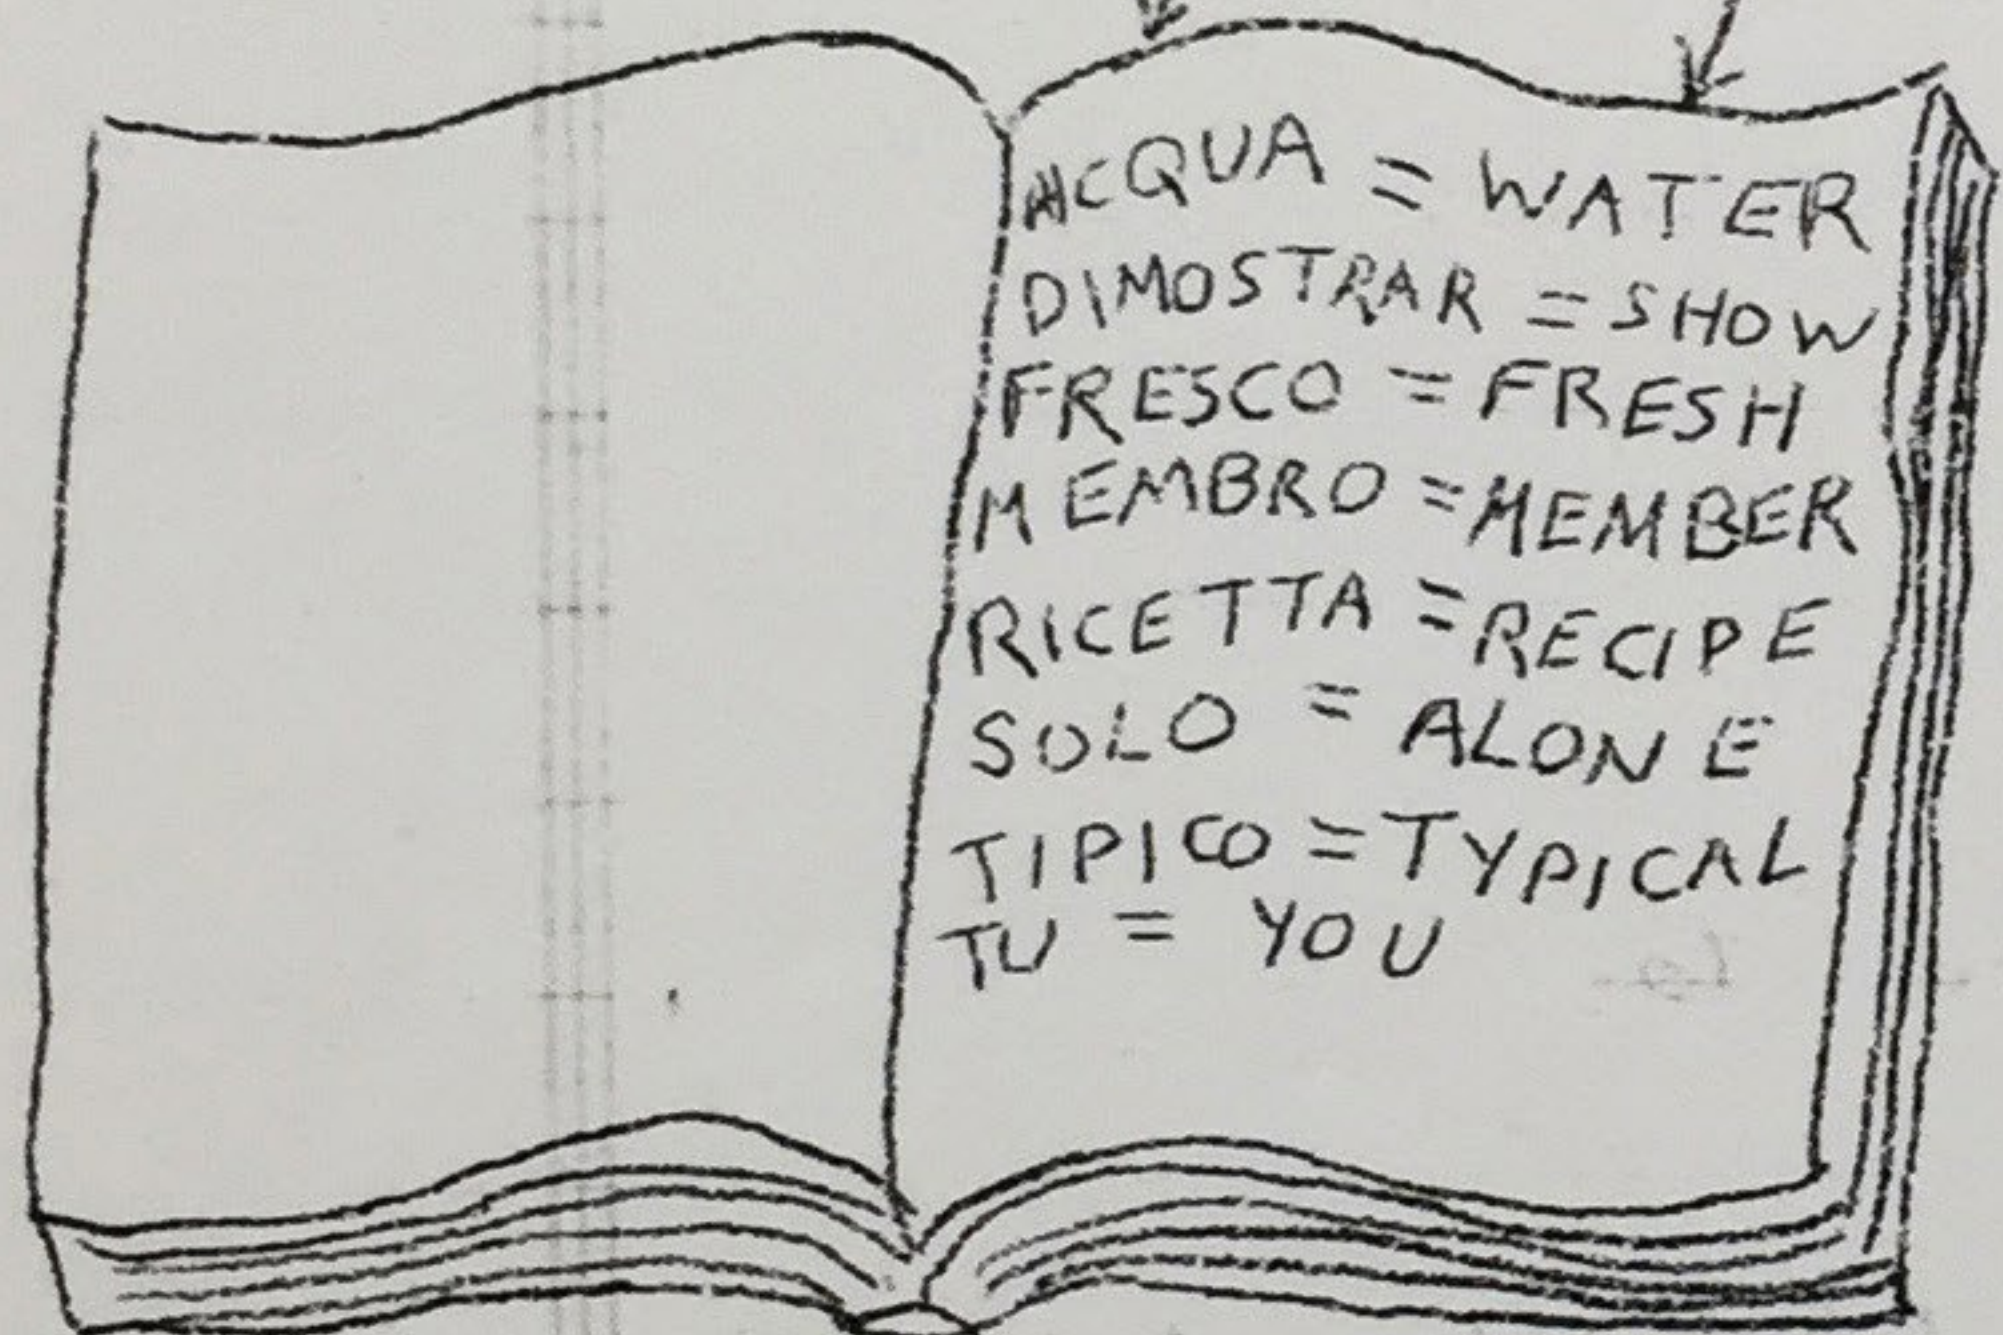 ACQUA = WATER
DIMOSTRAR = SHOW
FRESCO = FRESH
MEMBRO = MEMBER
RICETTA = RECIPE
SOLO = ALONE
TIPICO = TYPICAL
TU = YOU